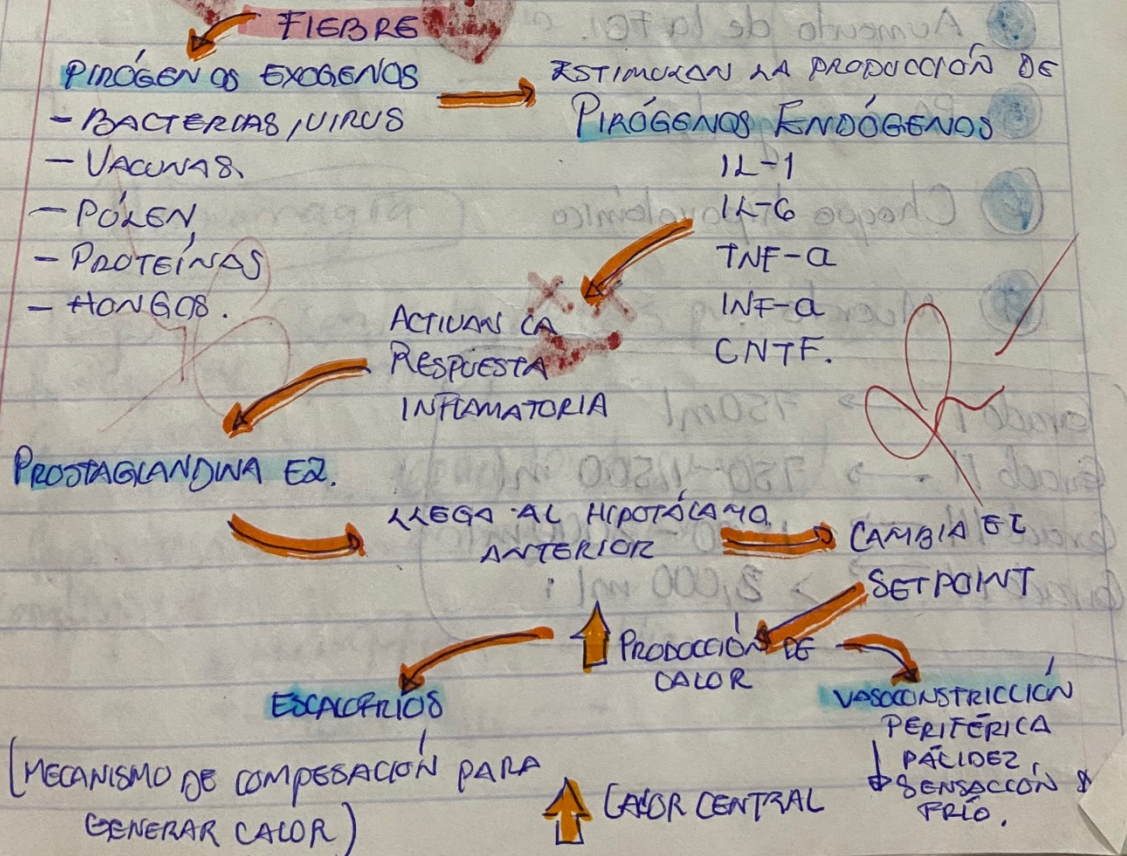 FIEBRE
PIRÓGENOS EXOGENOS
- BACTERIAS, VIRUS
- VACUNAS
- PÓLEN
- PROTEÍNAS
- HONGOS.
ESTIMULAN LA PRODUCCIÓN DE
PIRÓGENOS ENDÓGENOS
IL-1
IL-6
TNF-α
INF-α
CNTF.
ACTIVAN LA
RESPUESTA
INFLAMATORIA
PROSTAGLANDINA E2.
LLEGA AL HIPOTÁLAMO
ANTERIOR
CAMBIA EL
SETPOINT
PRODUCCIÓN DE
CALOR
ESCALOFRÍOS
(MECANISMO DE COMPESACIÓN PARA
GENERAR CALOR)
VASOCONSTRICCIÓN
PERIFÉRICA
PÁLIDEZ
SENSACCIÓN
FRÍO.
CALOR CENTRAL